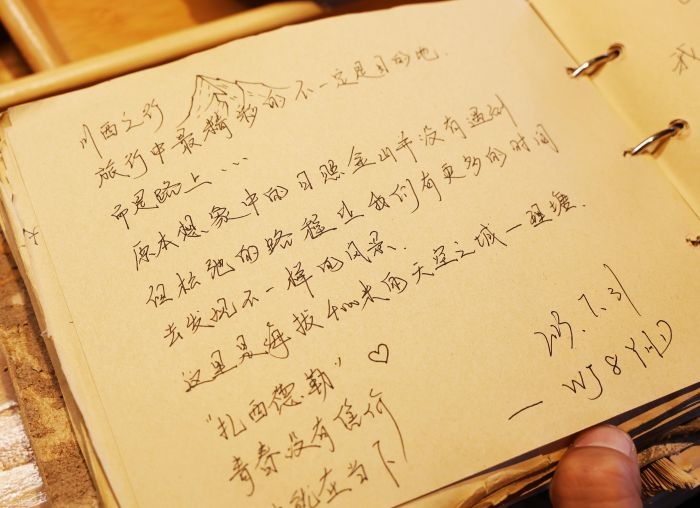 川西之行
旅行中最精彩的不一定是目的地.
而是路上...
原本想象中的日照金山并没有遇到
但松弛的路程让我们有更多的时间
去发现不一样的风景.
这里是海拔4000米的天空之城—理塘.
"扎西德勒" ♡
青春没有售价
就在当下
2023.7.31
— WJ & YHD
我